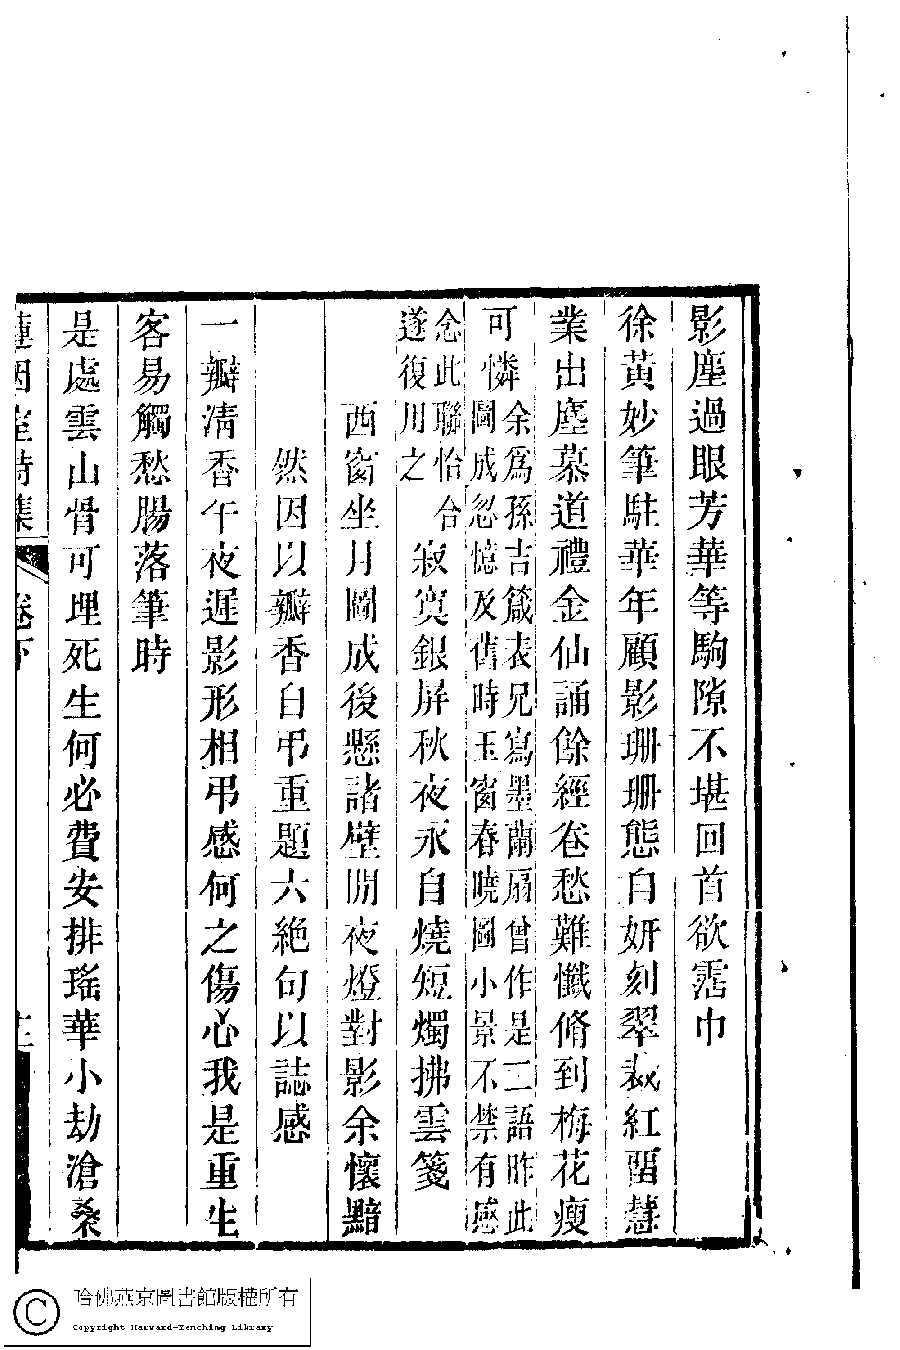 影塵過眼芳華等駒隙不堪回首欲霑巾
徐黃妙筆駐華年顧影珊珊態自妍刻翠裁紅留慧
業出塵慕道禮金仙誦餘經卷愁難懺脩到梅花瘦
可憐
余爲孫吉箴表兄寫墨蘭扇曾作是二語昨此
圖成忽憶及舊時玉窗春曉圖小景不禁有感
念此聯恰合
遂復用之
寂寞銀屏秋夜永自燒短燭拂雲箋
西窗坐月圖成後懸諸壁間夜燈對影余懷黯
然因以瓣香自弔重題六絶句以誌感
一瓣清香午夜遲影形相弔感何之傷心我是重生
客易觸愁腸落筆時
是處雲山骨可埋死生何必費安排瑤華小劫滄桑
蓮因室詩集
卷下
哈佛燕京圖書館版權所有
Copyright Harvard-Yenching Library